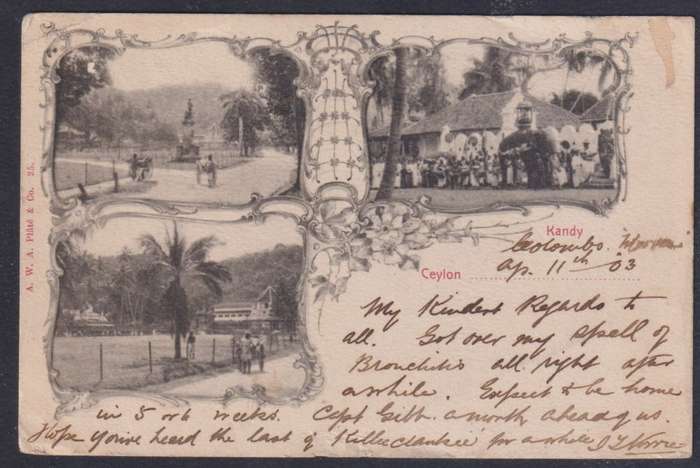 A. W. A. Plâté & Co. 25.
Kandy
Ceylon
Colombo.
Ap. 11th 03
My Kindest Regards to
all. Got over my spell of
Bronchitis all right after
awhile. Expect to be home
in 5 or 6 weeks. Capt Gibb. a month ahead of us.
Hope you've heard the last of Killiecrankie for a while